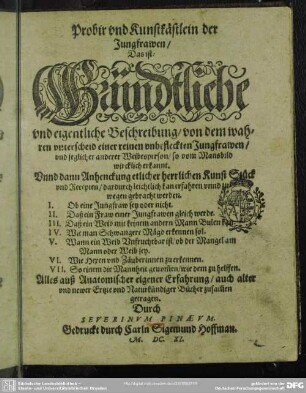 Probir vnd Kunstkästlein der
Jungfrawen /
Das ist:
Gründtliche
vnd eigentliche Beschreibung / von dem wah-
ren vnterscheid einer reinen vnbefleckten Jungfrawen /
vnd jeglicher anderer Weibsperson / so vom Mansbild
wircklich erkannt,
Vnnd dann Anhenckung etlicher herrlichen Kunst Stück
vnd Recepten / dardurch leichtlich kan erfahren vnnd zu
wegen gebracht werden.
I. Ob eine Jungfraw sey oder nicht.
II. Daß ein Fraw einer Jungfrawen gleich werde.
III. Daß ein Weib mit keinem andern Mann Bulen
IV. Wie man Schwangere Mägd erkennen sol.
V. Wann ein Weib Vnfruchtbar ist / ob der Mangel am
Mann oder Weib sey.
VI. Wie Hexen vnd Zäuberinnen zu erkennen.
VII. So einem die Mannheit genommen / wie dem zu helffen.
Alles auß Anatomischer eigener Erfahrung / auch alter
vnd newer Ertze vnd Naturkündiger Bücher zusamen
getragen,
Durch
SEVERINVM PINÆVM.
Gedruckt durch Carln Sigemund Hoffman.
M. DC. XI.